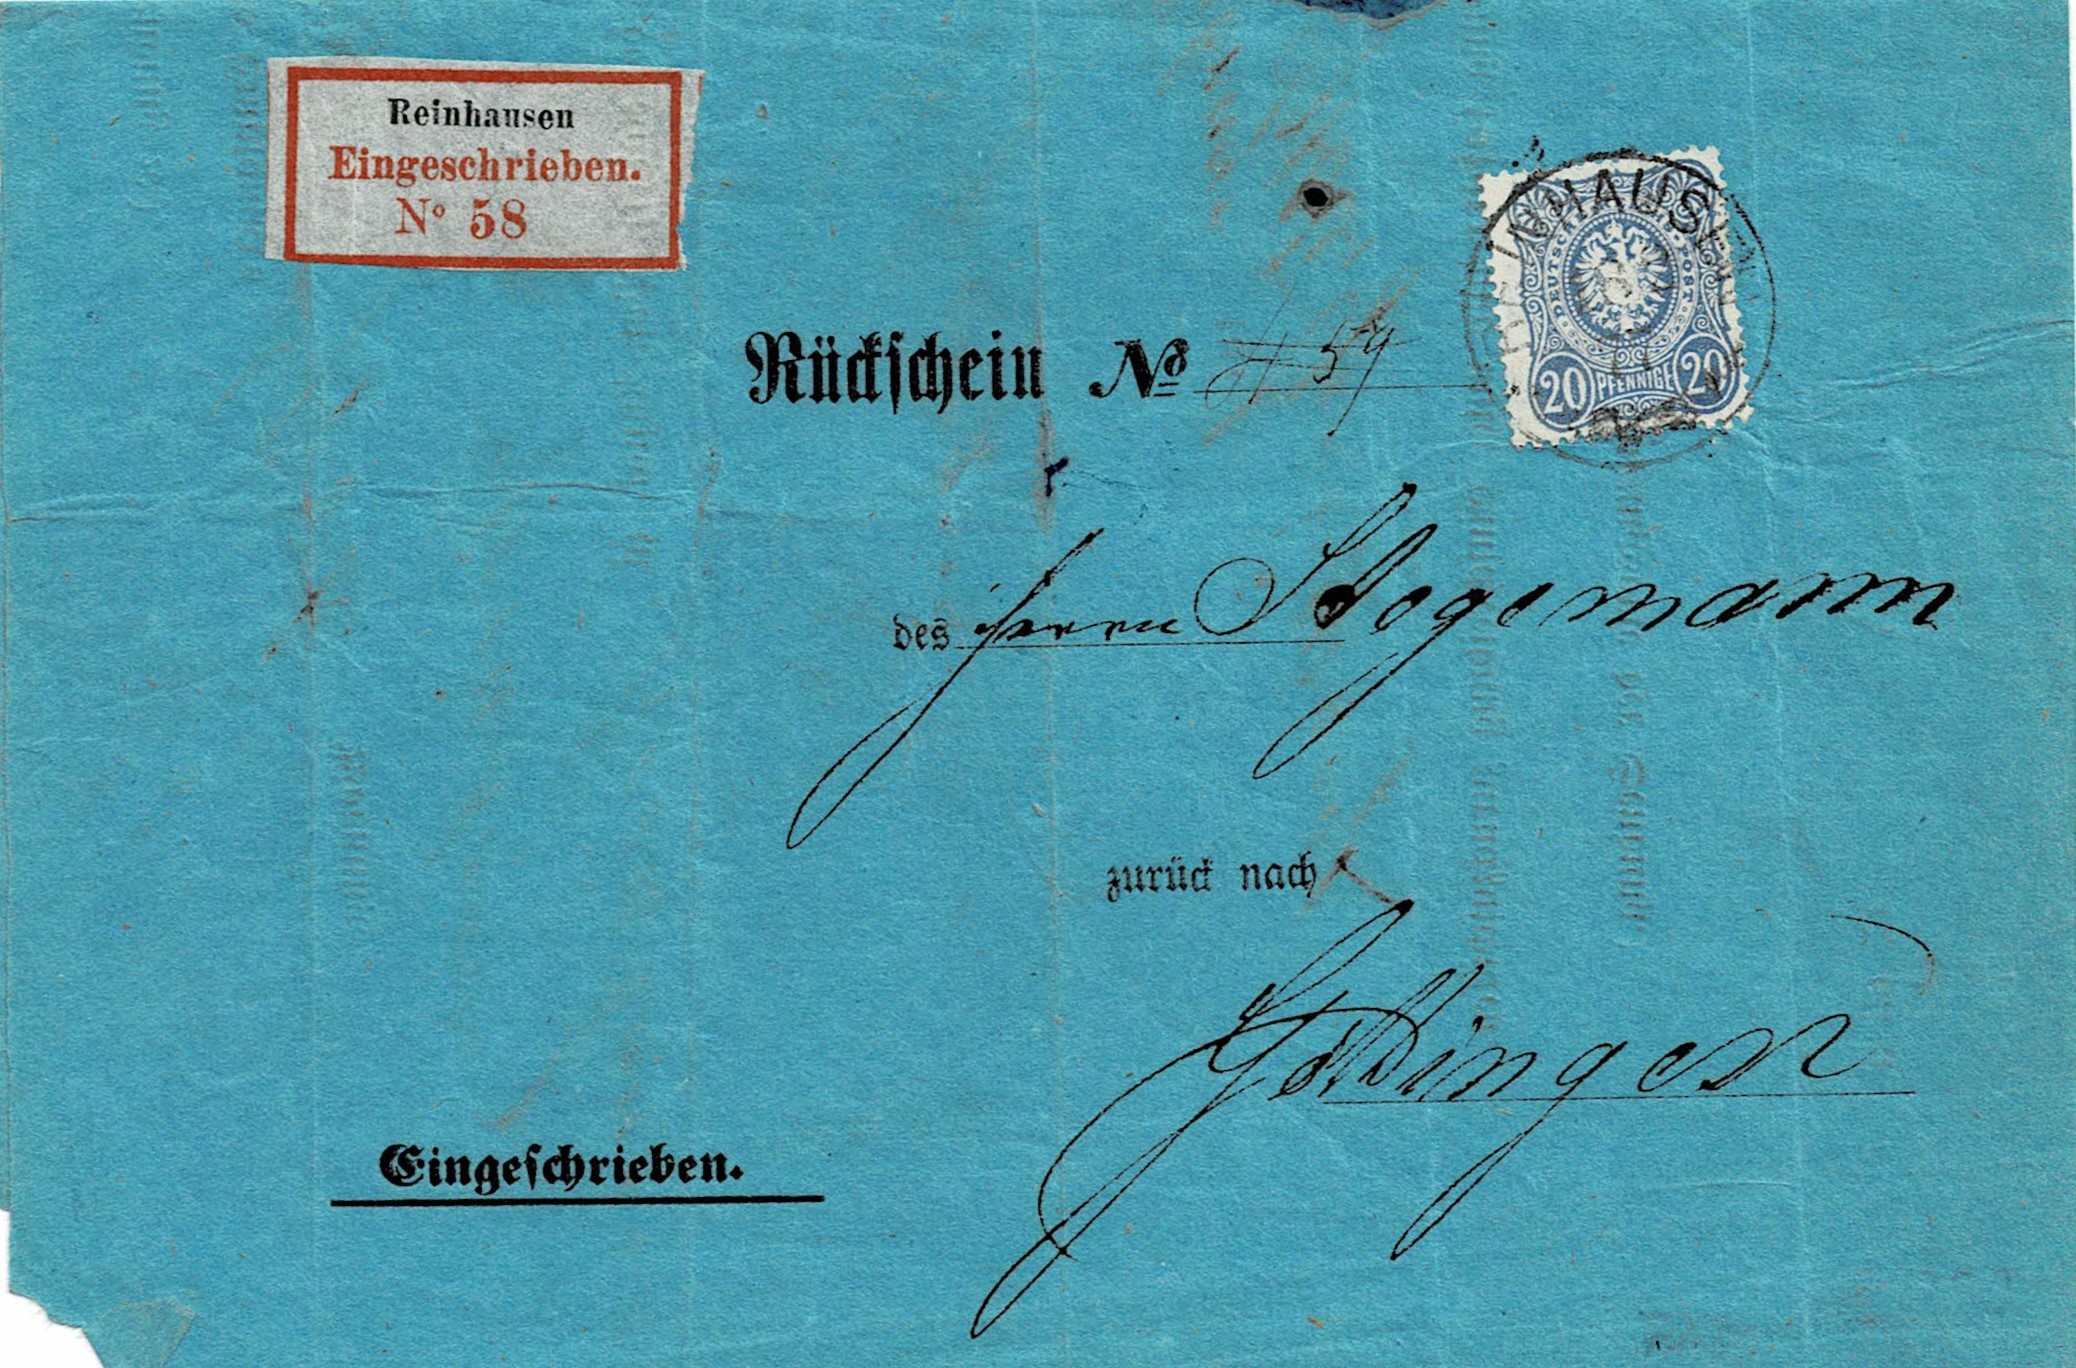 Reinhausen
Eingeschrieben.
No 58
REINHAUSEN
DEUTSCHE REICHS-POST
20 PFENNIGE 20
Rückschein No 59
des Herrn Stegemann
zurück nach
Göttingen
Eingeschrieben.